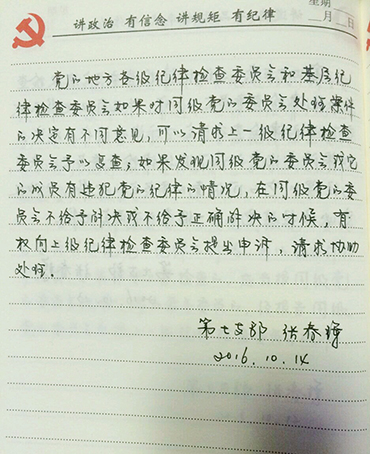 讲政治 有信念 讲规矩 有纪律
星期
月 日
党的地方各级纪律检查委员会和基层纪
律检查委员会如果对同级党的委员会处理案件
的决定有不同意见,可以请求上一级纪律检查
委员会予以复查;如果发现同级党的委员会或它
的成员有违犯党的纪律的情况,在同级党的委
员会不给予解决或不给予正确解决的时候,有
权向上级纪律检查委员会提出申诉,请求协助
处理.
第七支部 张春
2016.10.14